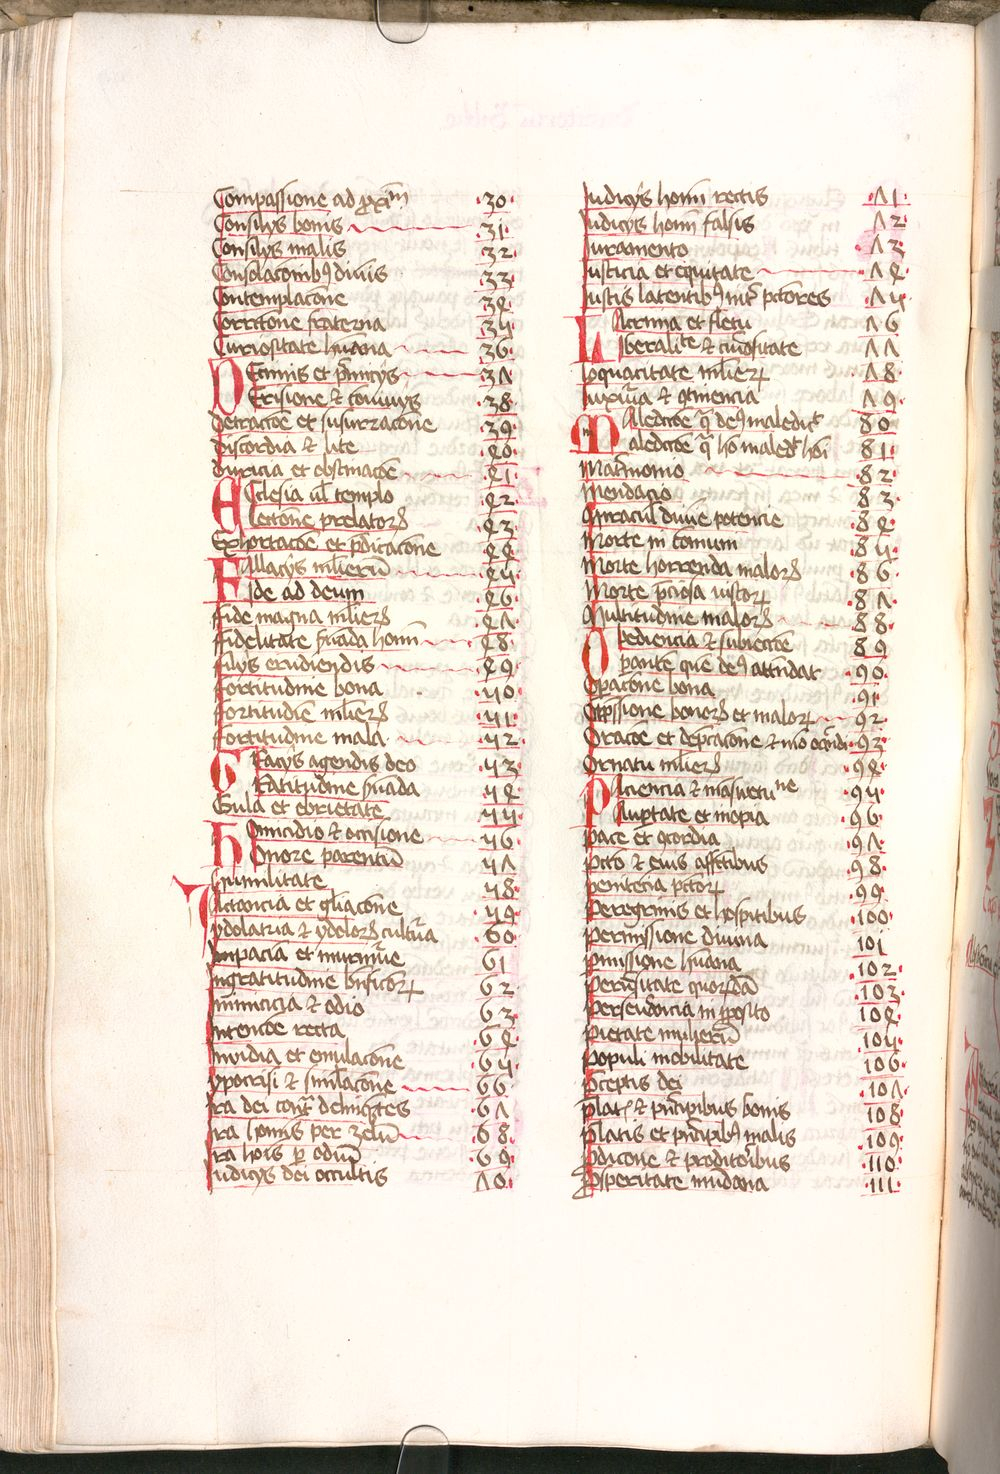 Compassione ad proximum 30
Consilijs bonis 31
Consilijs malis 32
Consolacionibus diuinis 33
Contemplacione 34
Correctione fraterna 35
Curiositate humana 36
Decimis et primicijs 37
Derisione et conuicijs 38
Detractione et susurracione 39
Discordia et lite 40
Duricia et obstinacione 41
Ecclesia uel templo 42
Electione prelatorum 43
Exhortacione et predicacione 44
Fallacijs mulierum 45
Fide ad deum 46
Fide magna mulierum 47
Fidelitate seruanda hominum 48
Filijs erudiendis 49
Fortitudine bona 50
Fortitudine mulierum 51
Fortitudine mala 52
Gracijs agendis deo 53
Gratitudine seruanda 54
Gula et ebrietate 55
Homicidio et occisione 56
Honore parentum 57
Humilitate 58
Iactancia et gloriacione 59
Ydolatria et ydolorum cultura 60
Impaciencia et murmure 61
Ingratitudine beneficiorum 62
Inimicicia et odio 63
Intencione recta 64
Inuidia et emulacione 65
Ypocrisi et simulacione 66
Ira dei contra delinquentes 67
Ira hominis per zelum 68
Ira hominis per odium 69
Iudicijs dei occultis 70
Iudicijs hominum rectis 71
Iudicijs hominum falsis 72
Iuramento 73
Iusticia et equitate 74
Iustis latentibus inter peccatores 75
Lacrima et fletu 76
Liberalitate et curiositate 77
Loquacitate mulierum 78
Luxuria et continencia 79
Maledictione qua deus maledicit 80
Maledictione qua homo maledicit homini 81
Matrimonio 82
Mendacio 83
Miraculis diuine potencie 84
Morte in communi 85
Morte horrenda malorum 86
Morte preciosa iustorum 87
Multitudine malorum 88
Obediencia et subiectione 89
que deus attendat 90
Operacione bona 91
Oppressione bonorum et malorum 92
Oracione et deprecacione et modo orandi 93
Ornatu mulierum 94
Paciencia et mansuetudine 95
Paupertate et inopia 96
Pace et concordia 97
Peccato et eius affectibus 98
Penitencia peccatorum 99
Peregrinis et hospitibus 100
Permissione diuina 101
Promissione humana 102
Periculositate quorundam 103
Perseuerancia in proposito 104
Pietate mulierum 105
Populi mobilitate 106
Preceptis dei 107
Prelatis et principibus bonis 108
Prelatis et principibus malis 109
Prodicione et proditoribus 110
Prosperitate mundana 111